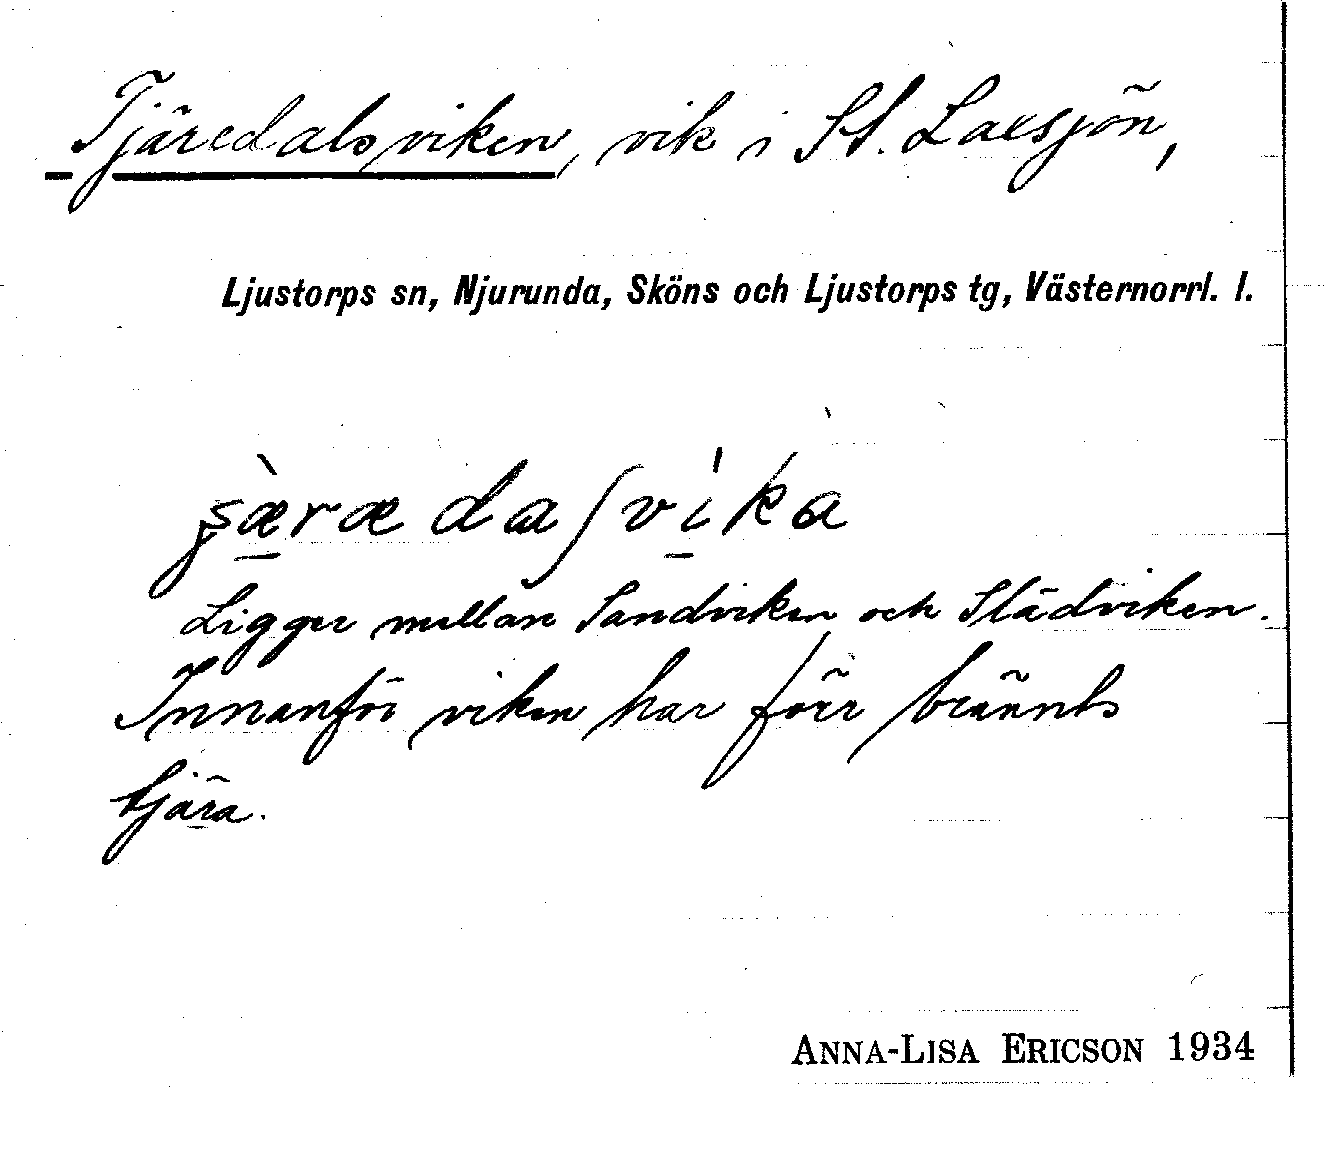 Tjäredalsviken, vik i St. Laxsjön,
Ljustorps sn, Njurunda, Sköns och Ljustorps tg, Västernorrl. l.
Ligger mellan Sandviken och Slädviken.
Innanför viken har förr bränts
tjära.
ANNA-LISA ERICSON 1934